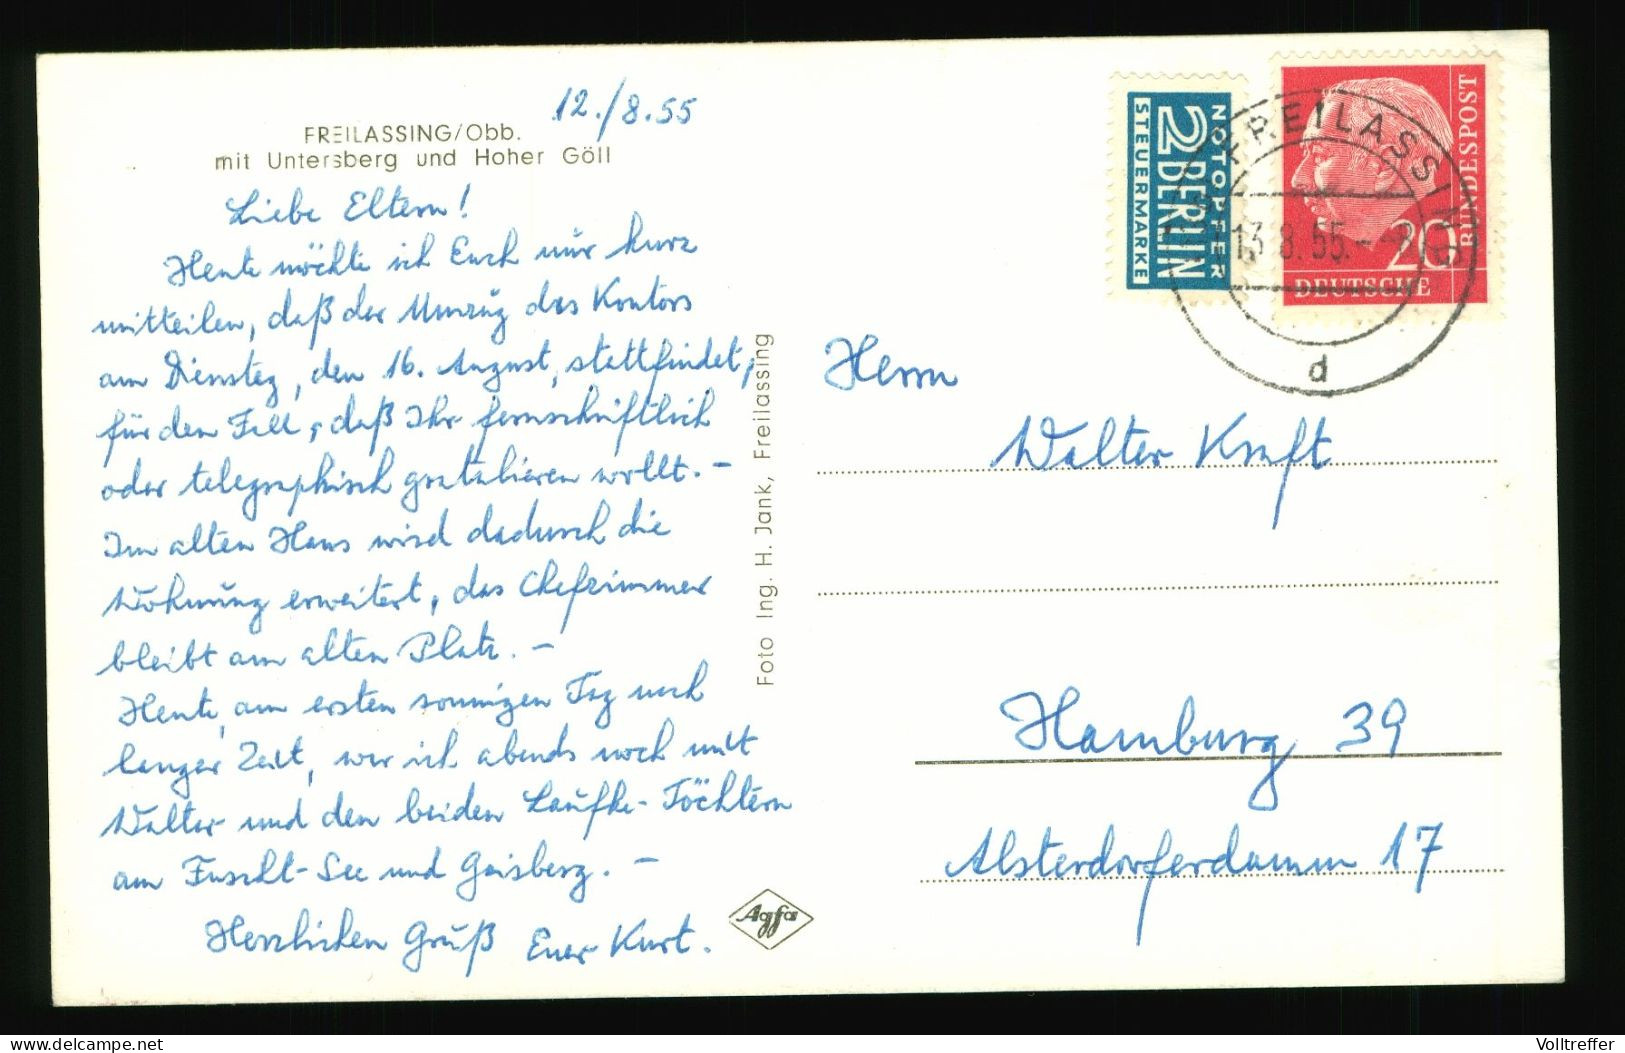 12./8.55
FREILASSING/Obb.
mit Untersberg und Hoher Göll
Liebe Eltern!
Heute möchte ich Euch nur kurz
mitteilen, daß der Umzug des Kontors
am Dienstag, den 16. August, stattfindet,
für den Fall, daß Ihr fernschriftlich
oder telegraphisch gratulieren wollt. –
Im alten Haus wird dadurch die
Wohnung erweitert, das Chefzimmer
bleibt am alten Platz. –
Heute, am ersten sonnigen Tag nach
langer Zeit, war ich abends noch mit
Walter und den beiden Laufke-Töchtern
am Fuschl-See und Gaisberg. –
Herzlichen Gruß Euer Kurt.
Foto Ing. H. Jank, Freilassing
Agfa
NOTOPFER
2 BERLIN
STEUERMARKE
DEUTSCHE
BUNDESPOST
20
FREILASSING
13.8.55.-
d
Herrn
Walter Kraft
Hamburg 39
Alsterdorferdamm 17
delcampe.net
Volltreffer